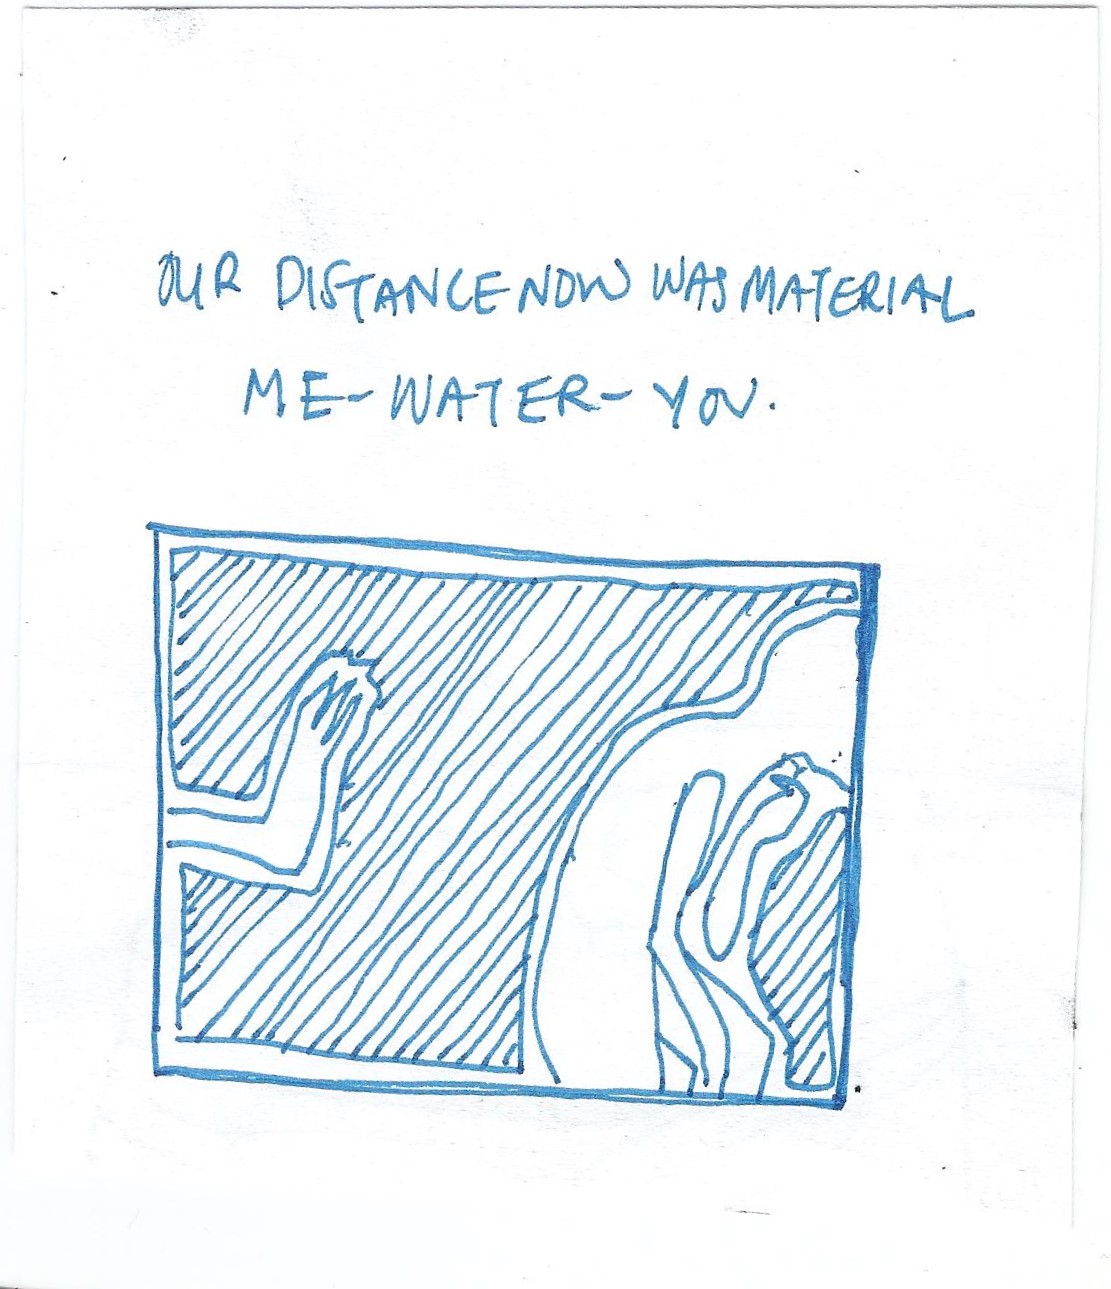 OUR DISTANCE NOW WAS MATERIAL
ME-WATER-YOU.